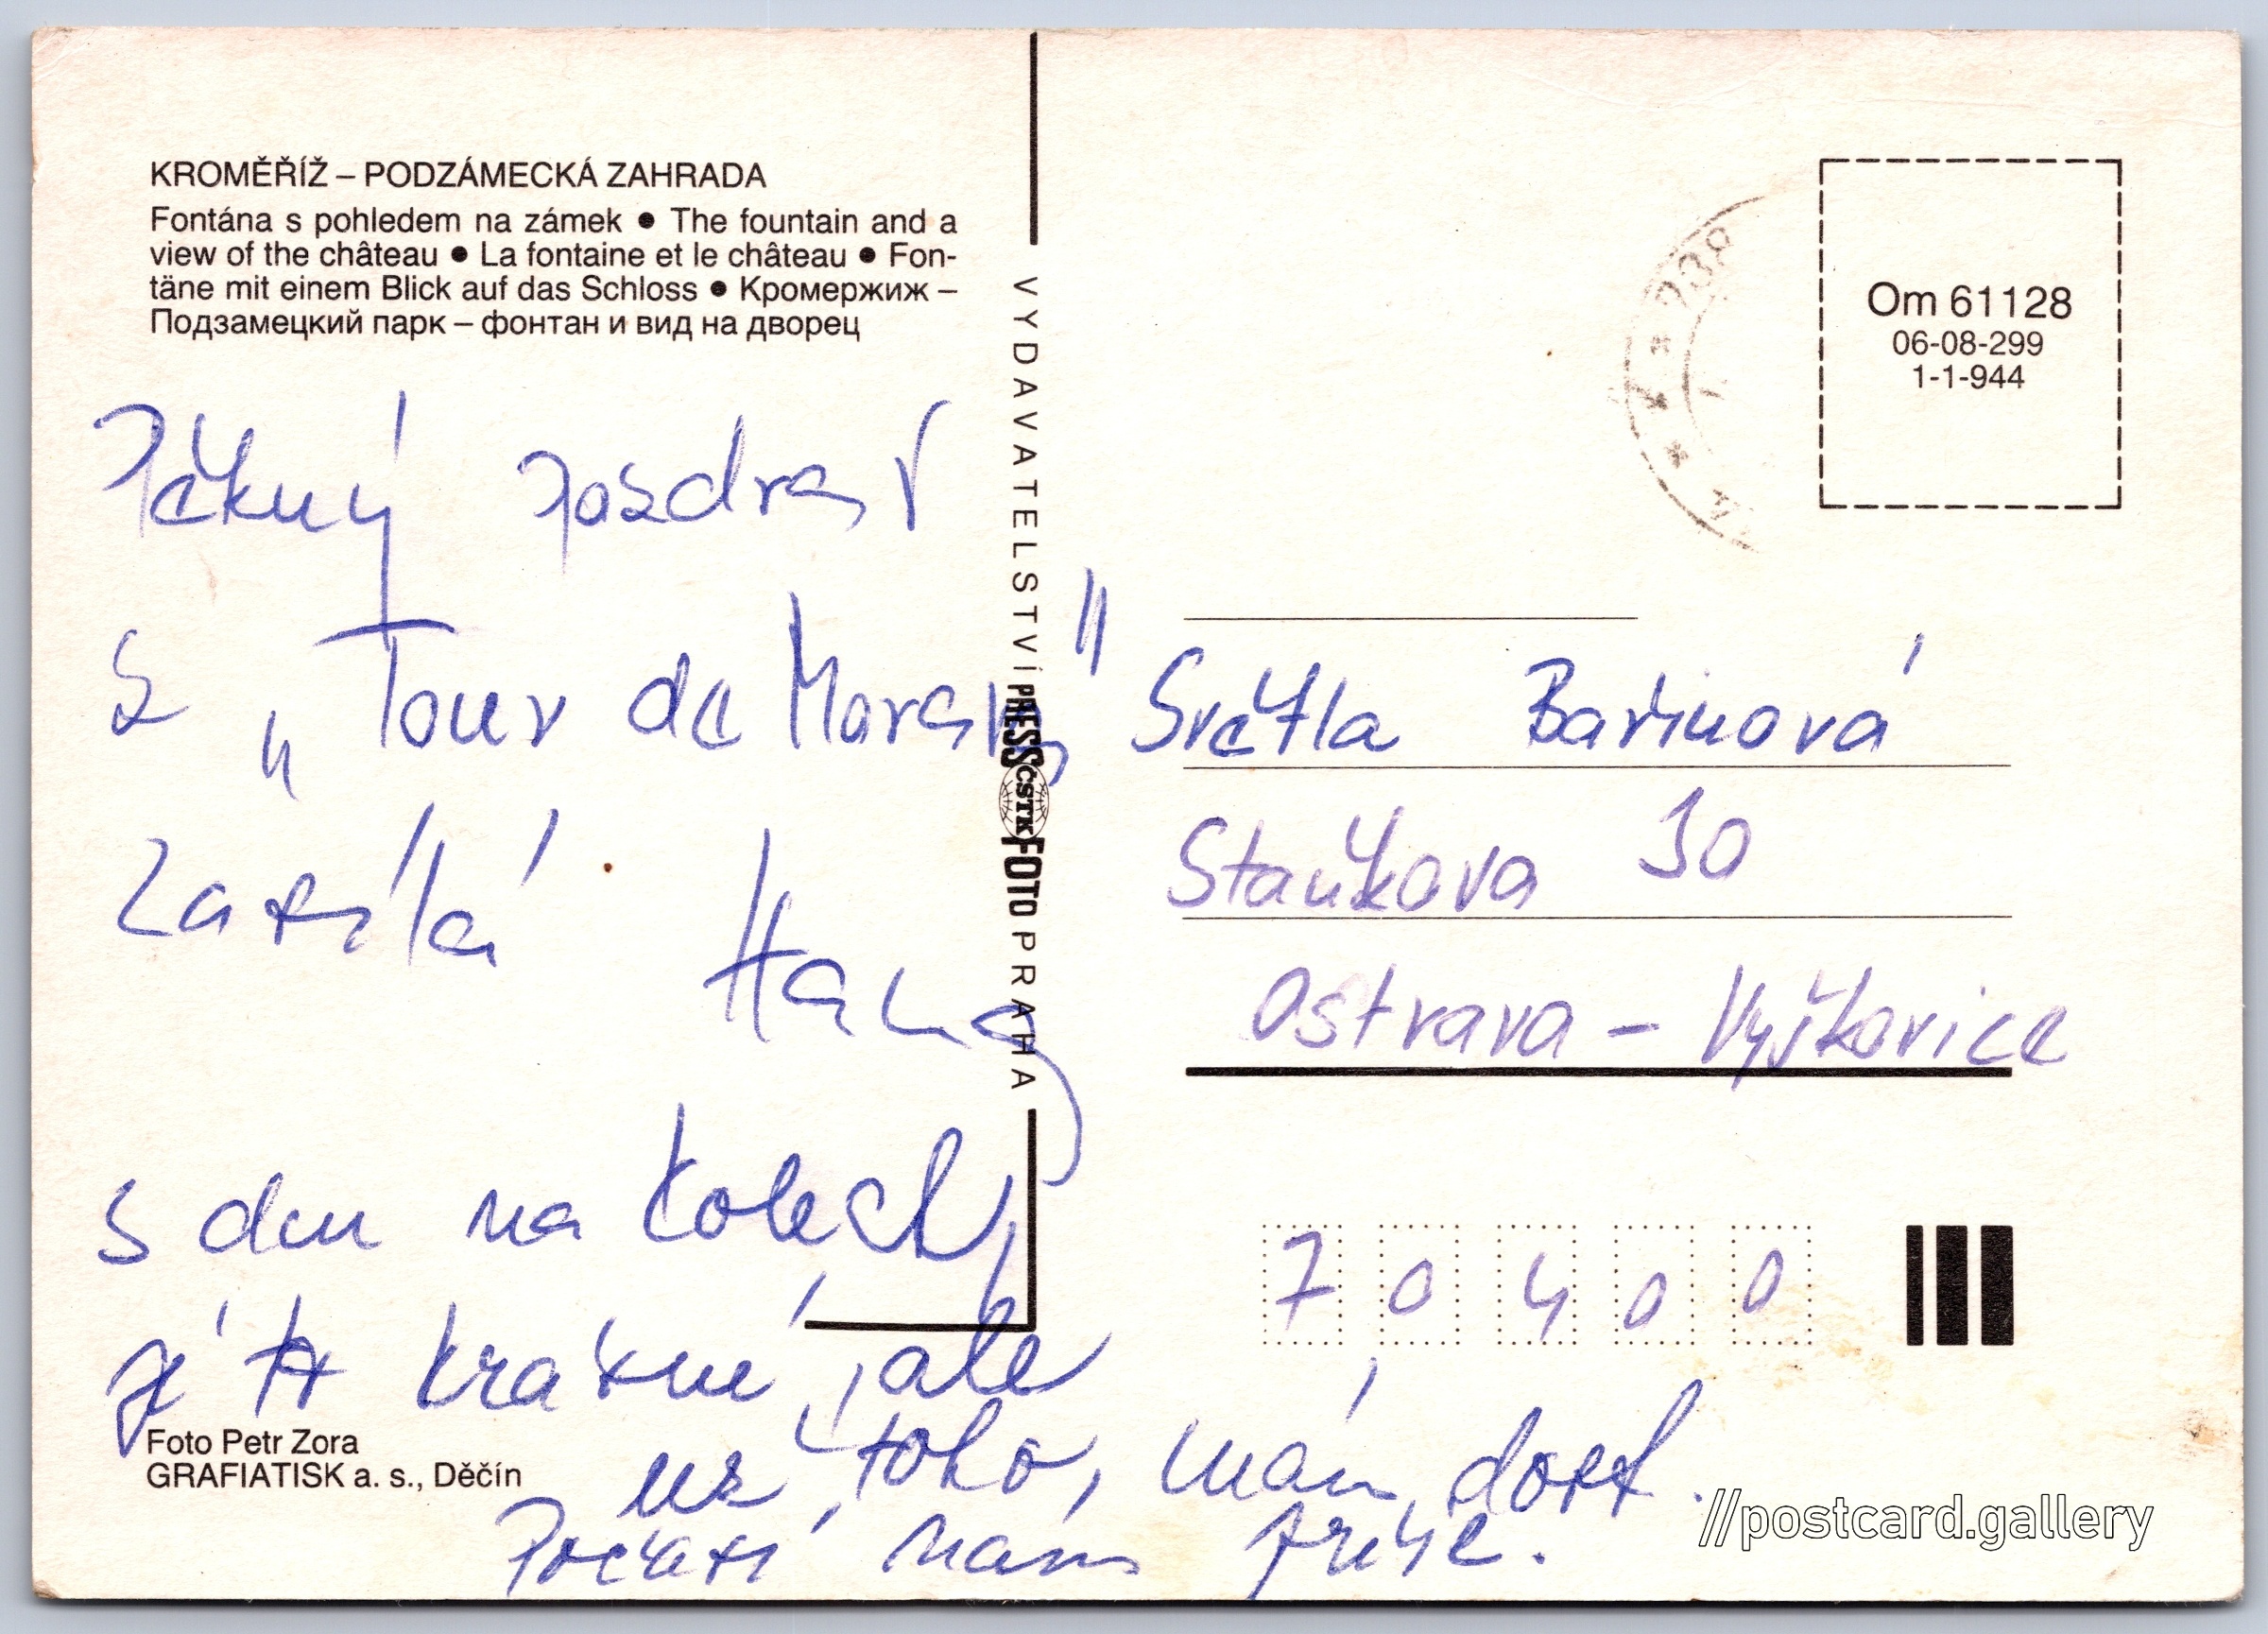 KROMĚŘÍŽ – PODZÁMECKÁ ZAHRADA
Fontána s pohledem na zámek ● The fountain and a
view of the château ● La fontaine et le château ● Fon-
täne mit einem Blick auf das Schloss ● Кромержиж –
Подзамецкий парк – фонтан и вид на дворец
Pěkný pozdrav
z „Tour de Morava"
zasílá Hana
5 dnů na kolech,
je to krásné, ale
už toho mám dost.
Počasí nám přeje.
Foto Petr Zora
GRAFIATISK a. s., Děčín
VYDAVATELSTVÍ PRESSFOTO PRAHA
ČSTK
Om 61128
06-08-299
1-1-944
Světla Bařinová
Staňkova 30
Ostrava – Výškovice
70400
//postcard.gallery